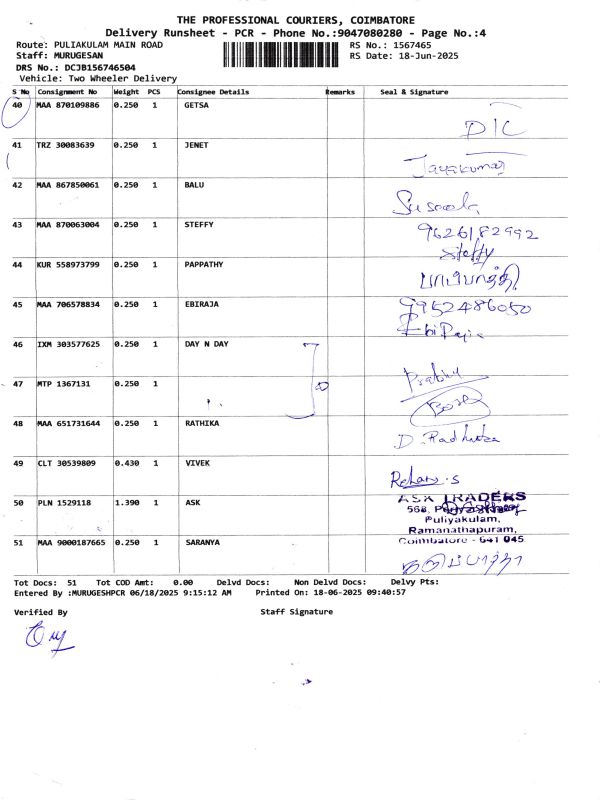 THE PROFESSIONAL COURIERS, COIMBATORE
Delivery Runsheet - PCR - Phone No.:9047080280 - Page No.:4
Route: PULIAKULAM MAIN ROAD RS No.: 1567465
Staff: MURUGESAN RS Date: 18-Jun-2025
DRS No.: DCJB156746504
Vehicle: Two Wheeler Delivery
S No Consignment No Weight PCS Consignee Details Remarks Seal & Signature
40 MAA 870109886 0.250 1 GETSA
D/C
41 TRZ 30083639 0.250 1 JENET
Jayakumar
42 MAA 867850061 0.250 1 BALU
Suseela
43 MAA 870063004 0.250 1 STEFFY 9626182992
Steffy
44 KUR 558973799 0.250 1 PAPPATHY
பாப்பாத்தி
45 MAA 706578834 0.250 1 EBIRAJA 9952486050
EbiRaja
46 IXM 303577625 0.250 1 DAY N DAY
Prabhu
47 MTP 1367131 0.250 1
48 MAA 651731644 0.250 1 RATHIKA
D. Radhika
49 CLT 30539809 0.430 1 VIVEK
50 PLN 1529118 1.390 1 ASK ASK TRADERS
568,
Puliyakulam,
Ramanathapuram,
Coimbatore - 641 045
51 MAA 9000187665 0.250 1 SARANYA
Tot Docs: 51 Tot COD Amt: 0.00 Delvd Docs: Non Delvd Docs: Delvy Pts:
Entered By :MURUGESHPCR 06/18/2025 9:15:12 AM Printed On: 18-06-2025 09:40:57
Verified By Staff Signature